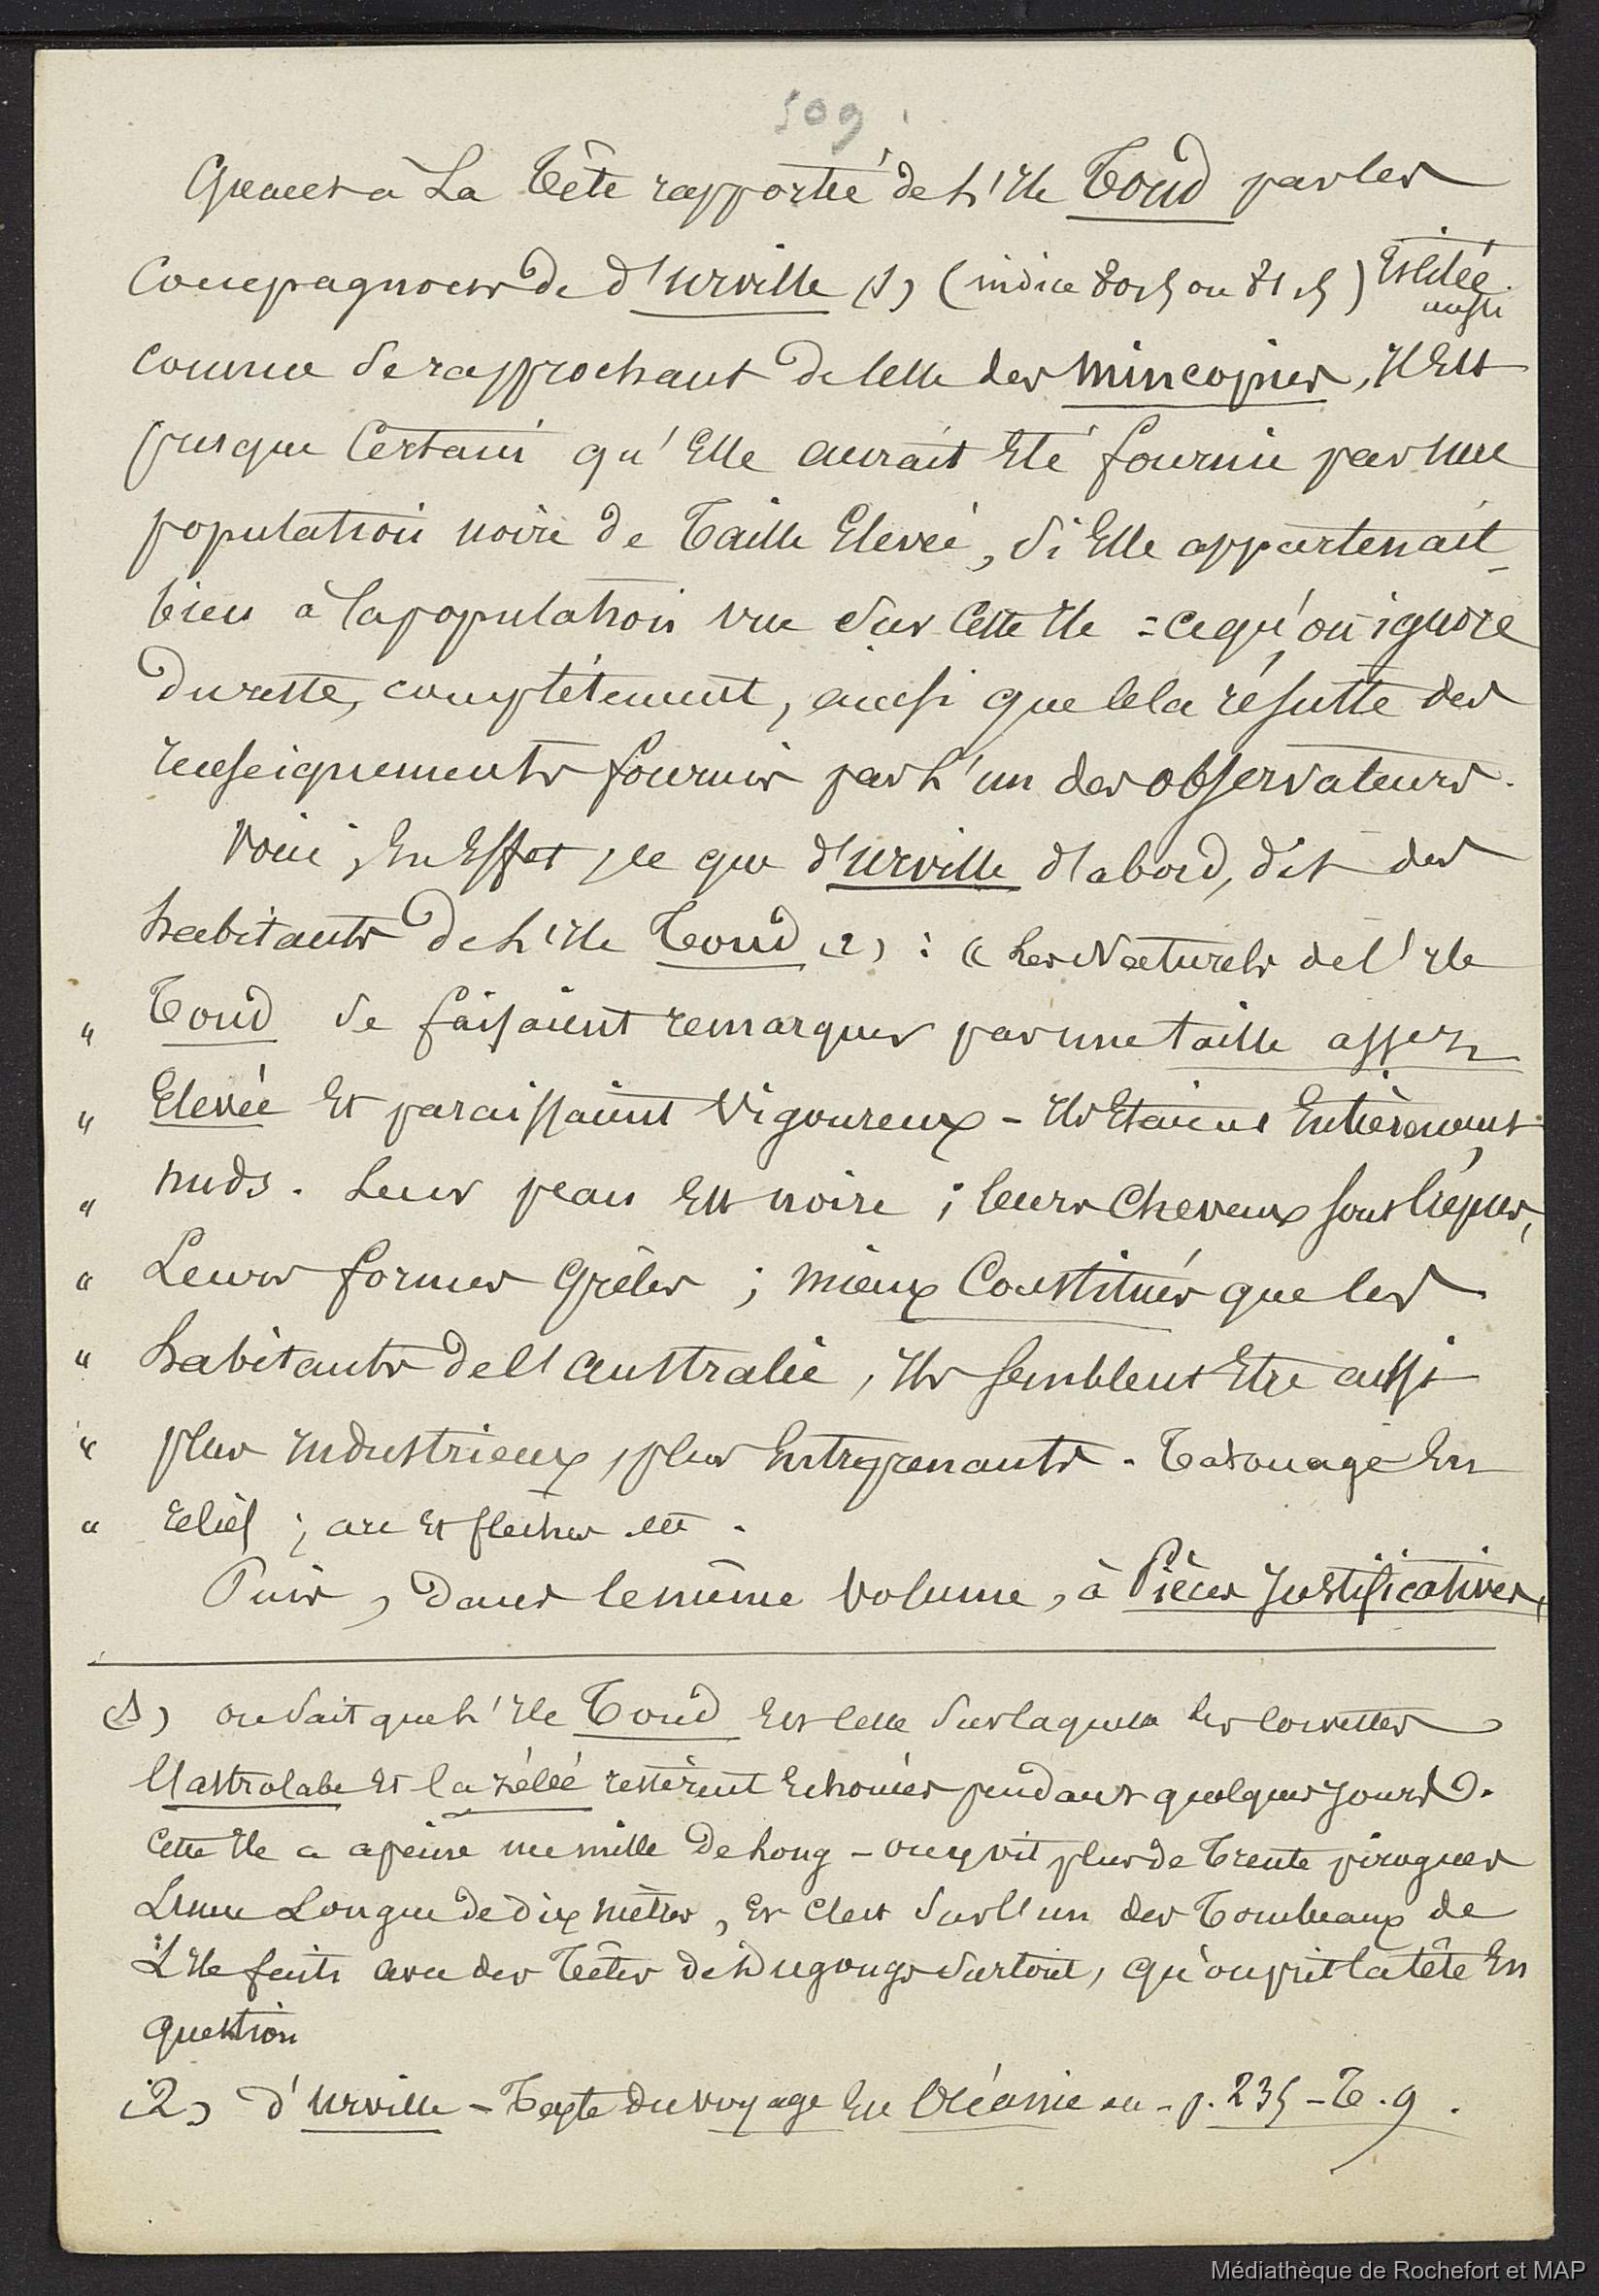 509.
Quant à la tête rapportée de l'île Toud par les
Compagnons de d'Urville (1) (indice 80,5 ou 81,5) Est citée
aussi
comme se rapprochant de celle des Mincopies, Il Est
presque Certain qu'Elle aurait Eté fournie par une
population noire de Taille Elevée, si Elle appartenait
bien à la population vue sur cette Ile = ce qu'on ignore
du reste, complètement, ainsi que cela résulte des
renseignements fournis par l'un des observateurs.
Voici, En Effet, ce que d'Urville d'abord, dit des
habitants de l'Ile Toud (2) : « Les Naturels de l'Ile
" Toud se faisaient remarquer par une taille assez
" Elevée Et paraissaient Vigoureux - Ils Etaient Entièrement
" nuds. Leur peau Est noire ; leurs Cheveux sont Crépus,
" Leurs formes Grêles ; mieux Constitués que les
" habitants de l'australie, Ils semblent Etre aussi
" plus industrieux, plus Entreprenants. Tatouage En
" relief ; arc Et flèches etc.
Puis, Dans le même Volume, à Pièces Justificatives,
(1) on sait que l'Ile Toud Est celle sur laquelle les corvettes
l'astrolabe Et la zélée restèrent Echouées pendant quelques jours.
Cette Ile a apeine un mille de Long - on y vit plus de Trente pirogues
L'une Longue de dix mètres, Et c'est sur l'un des Tombeaux de
L'Ile faits avec des Têtes de Dugongs surtout, qu'on prit la tête En
question
(2) d'Urville - Texte du voyage En Océanie etc - p. 235 - T. 9.
Médiathèque de Rochefort et MAP